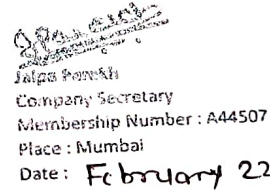 Jalpa Parekh
Company Secretary
Membership Number : A44507
Place : Mumbai
Date : February 22